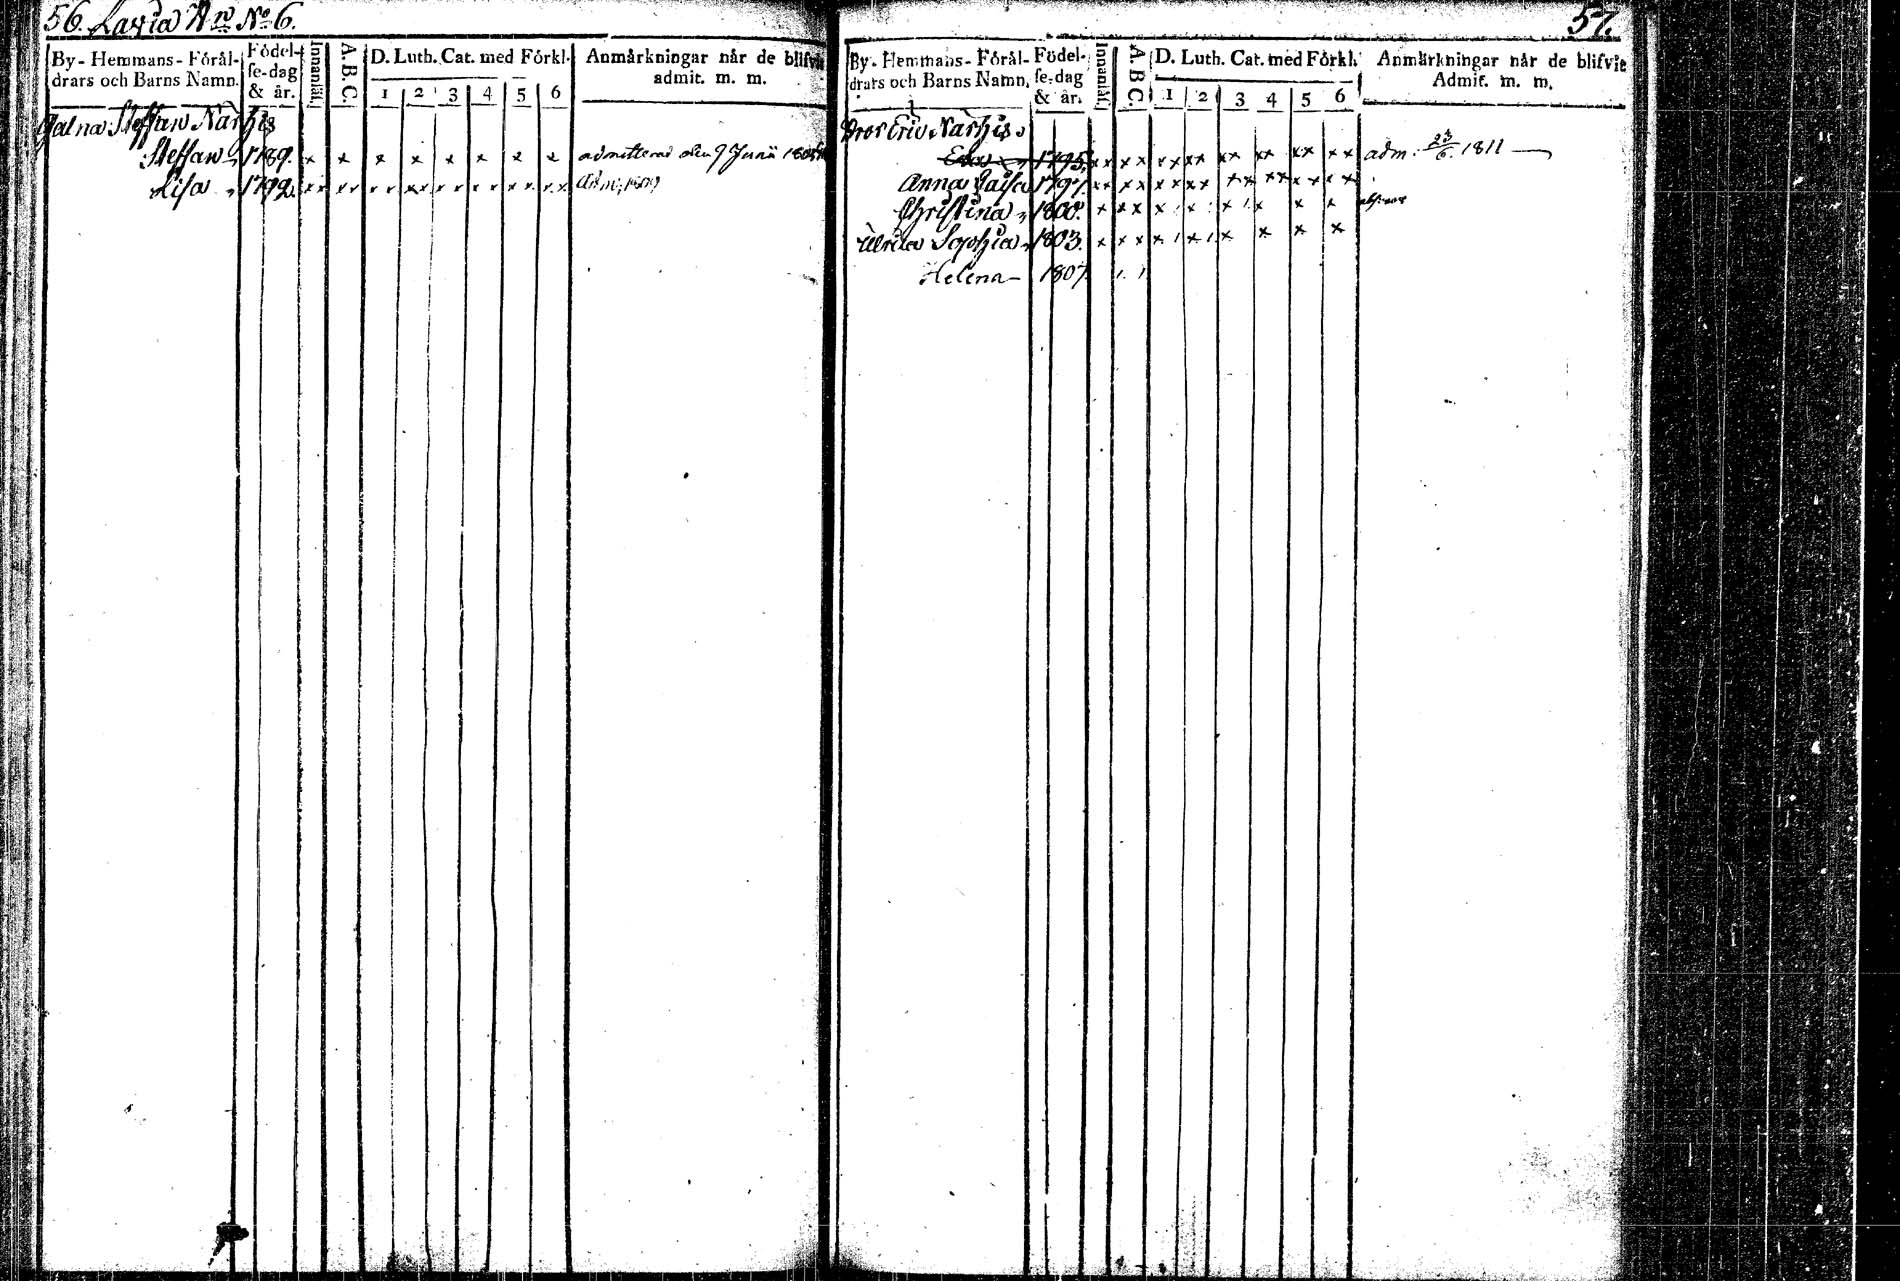 56. Laxia No 6.
By- Hemmans- Förål-
drars och Barns Namn.
Födel-
se-dag
& år.
Innanläsn.
A. B. C.
D. Luth. Cat. med Förkl.
1 2 3 4 5 6
Anmärkningar når de blifvit
admit. m. m.
Steffan Narhis
Steffan 1789. x x x x x x x x admitterad den 9 Junii
Lisa 1792. Adm. 1809
57.
By- Hemmans- Förål-
drars och Barns Namn.
Födel-
se-dag
& år.
Innanläsn.
A. B. C.
D. Luth. Cat. med Förkl.
1 2 3 4 5 6
Anmärkningar når de blifvit
Admit. m. m.
Eric Narhis
1795. adm: 23/6. 1811
Anna Caisa 1797.
Christina 1800.
Ulrica Sophia 1803.
Helena 1807